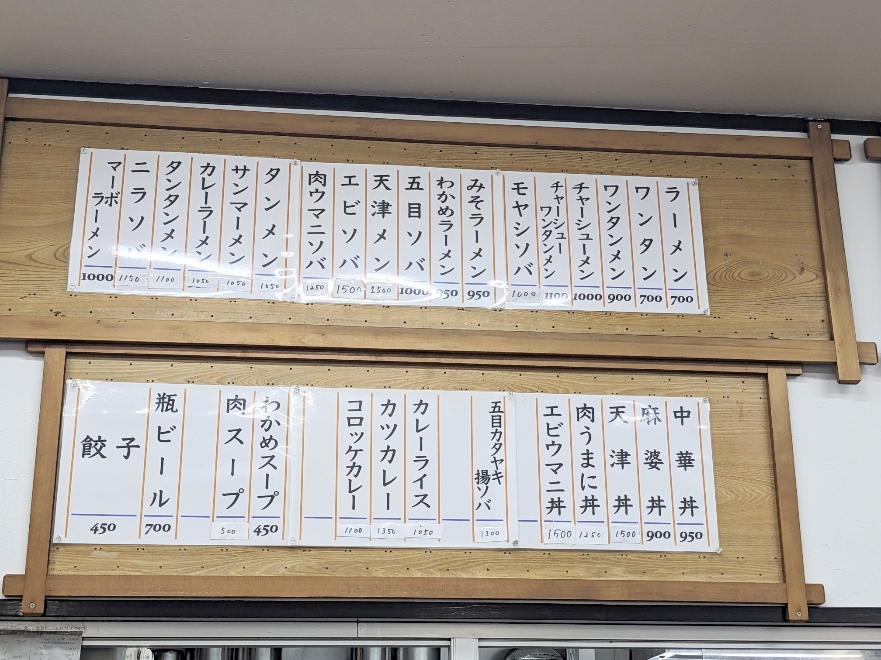 ラーメン 700
ワンタン 700
ワンタンメン 900
チャーシューメン 1000
チャーシューワンタンメン 1100
モヤシソバ 1000
みそラーメン 950
わかめラーメン 950
五目ソバ 1000
天津メン 1500
エビソバ 1500
肉ウマニソバ 1250
タンメン 1050
サンマーメン 1050
カレーラーメン 1050
タンタンメン 1100
ニラソバ 1150
マーボラーメン 1000
中華丼 950
麻婆丼 900
天津丼 1500
肉うまに丼 1250
エビウマニ丼 1500
五目カタヤキ揚ソバ 1300
カレーライス 1050
カツカレー 1350
コロッケカレー 1100
わかめスープ 450
肉スープ 500
瓶ビール 700
餃子 450